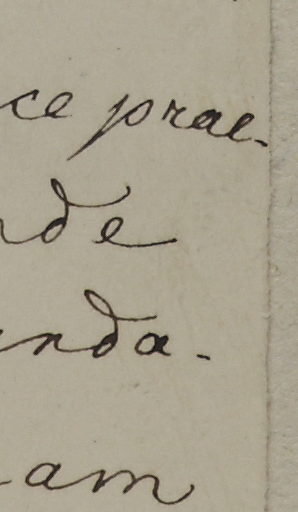 ce prae-
nde
enda-
am